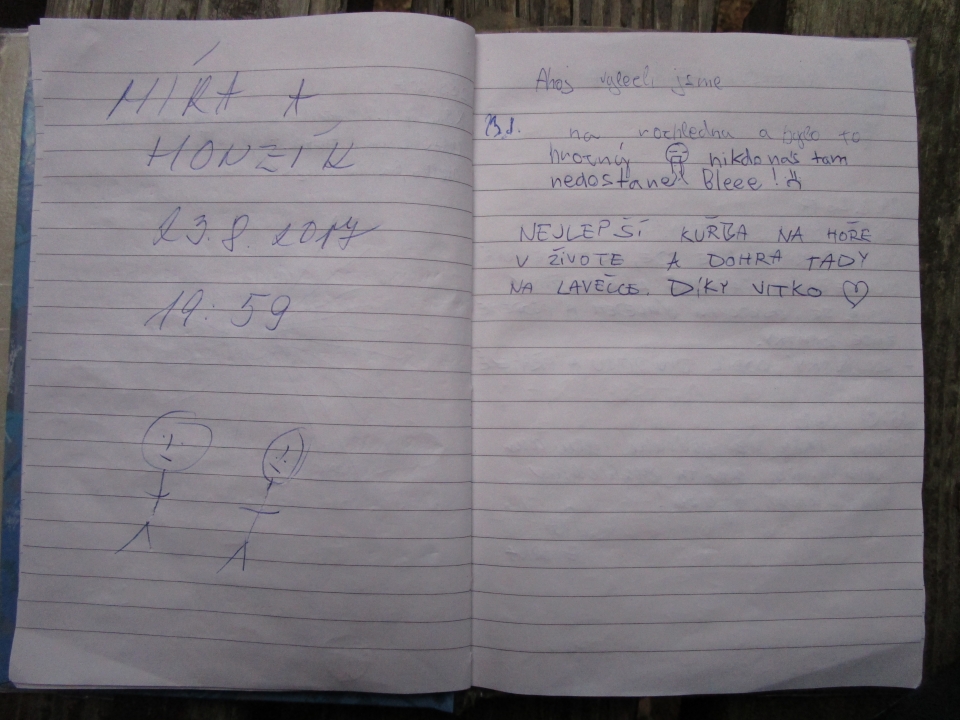 MÍRA A
HONZÍK
23.8.2017
19:59
Ahoj vylezli jsme
na rozhlednu a bylo to
hrozný nikdo nás tam
nedostane! Bleee!
NEJLEPŠÍ KUŘBA NA HOŘE
V ŽIVOTE A DOHRA TADY
NA LAVEČCE. DÍKY VITKO